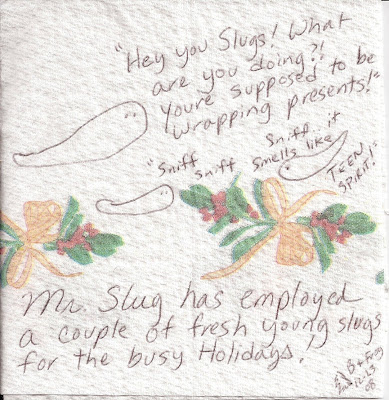 "Hey you Slugs! What
are you doing?!
You're supposed to be
wrapping presents!"
"Sniff sniff
Sniff it
smells like
TEEN
SPIRIT!"
Mr. Slug has employed
a couple of fresh young slugs
for the busy Holidays!